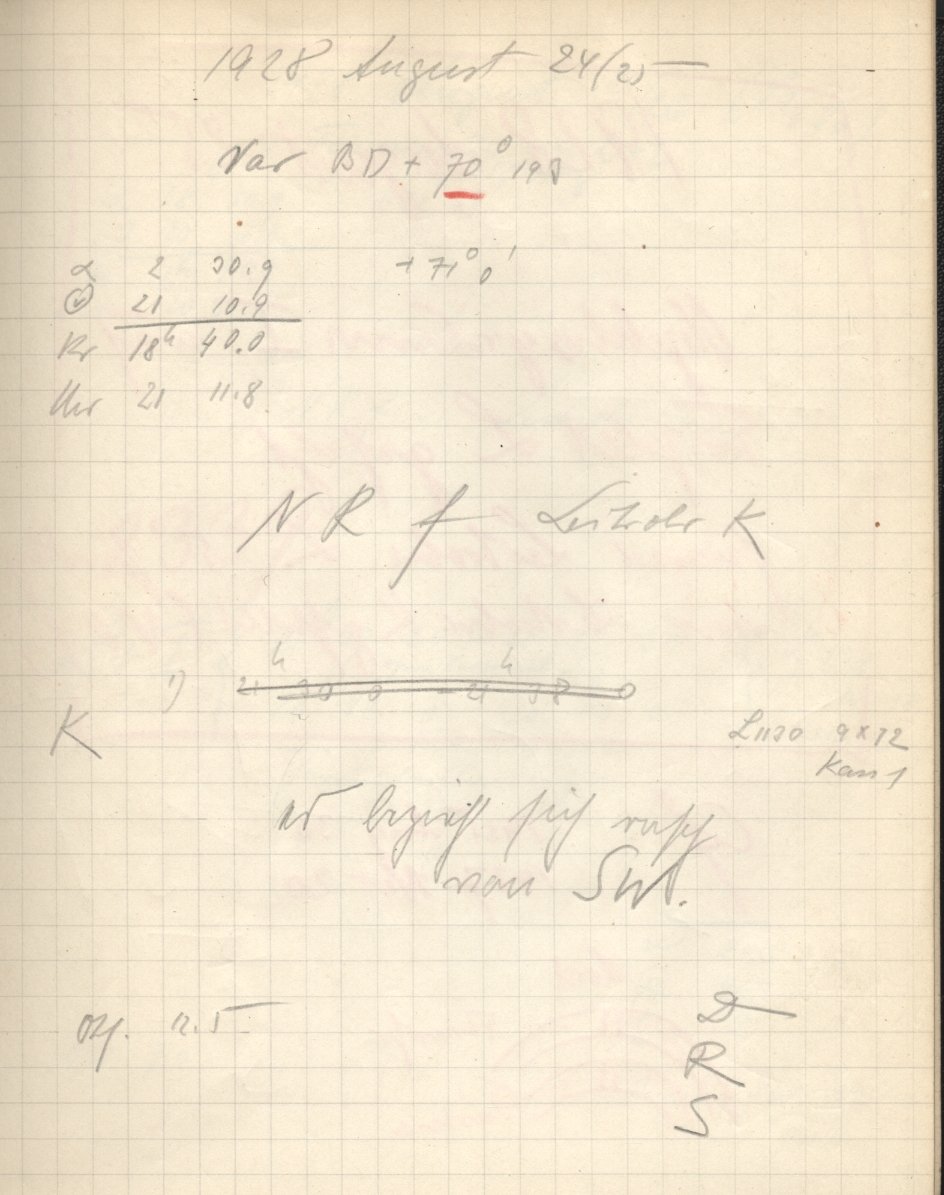 1928 August 24/25
Var BD + 70° 198
α 2 30.9 + 71° 0'
⊙ 21 10.9
Kr 18h 40.0
Uhr 21 11.8
N R f Leitrohr K
1) 21h 30 0 – 21h 38 0
K
9x12
Kass 1
es bezieht sich rasch
von SW.
Obj. 12.5
D
R
S